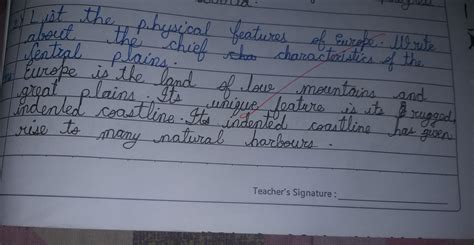 List the physical features of Europe. Write
about the chief characteristics of the
Sentral plains.
Europe is the land of low mountains and
great plains. Its unique feature is its rugged,
indented coastline. Its indented coastline has given
rise to many natural harbours.
Teacher's Signature :